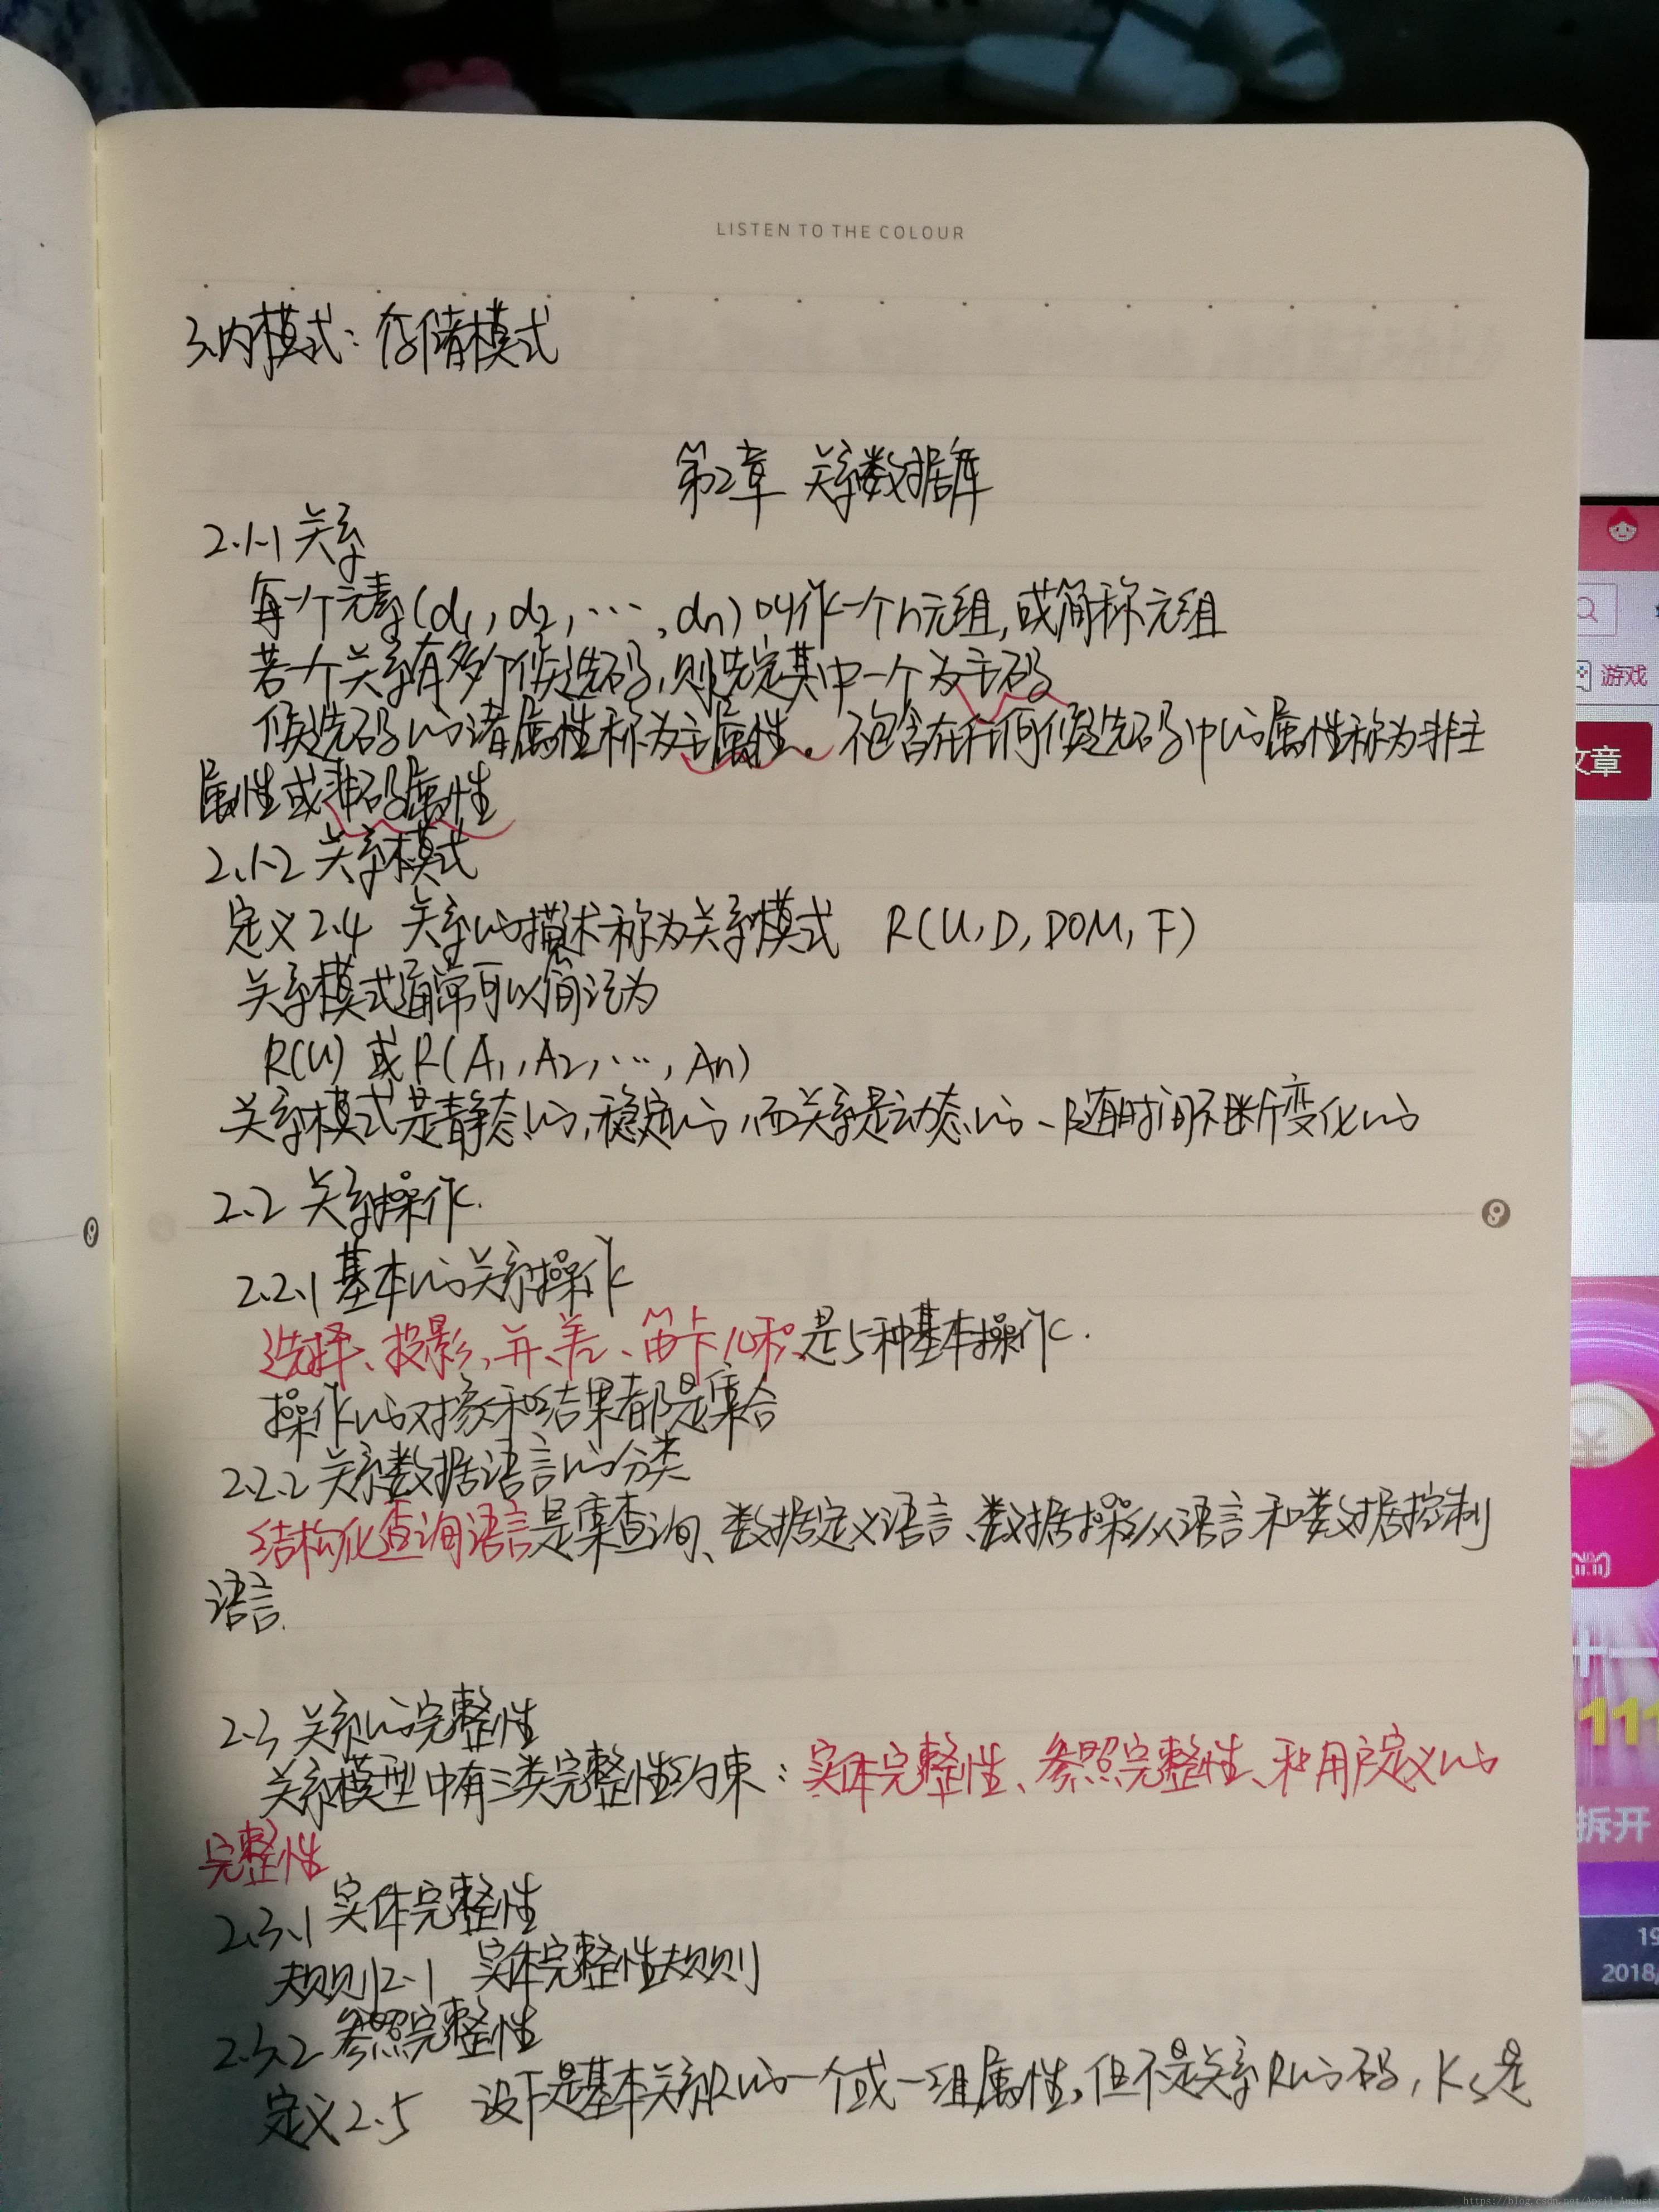 LISTEN TO THE COLOUR
3、内模式：存储模式
第2章 关系数据库
2.1.1 关系
每一个元素(d1, d2, ···, dn)叫作一个n元组,或简称元组
若一个关系有多个候选码,则选定其中一个为主码
候选码的诸属性称为主属性。不包含在任何候选码中的属性称为非主
属性或非码属性
2.1.2 关系模式
定义2.4 关系的描述称为关系模式 R(U, D, DOM, F)
关系模式通常可以简记为
R(U) 或 R(A1, A2, ···, An)
关系模式是静态的,稳定的,而关系是动态的、随时间不断变化的
2.2 关系操作.
9
9
2.2.1 基本的关系操作
选择、投影、并、差、笛卡儿积是5种基本操作.
操作的对象和结果都是集合
2.2.2 关系数据语言的分类
结构化查询语言是集查询、数据定义语言、数据操纵语言和数据控制
语言.
2.3 关系的完整性
关系模型中有三类完整性约束：实体完整性、参照完整性、和用户定义的
完整性
2.3.1 实体完整性
规则2.1 实体完整性规则
2.3.2 参照完整性
定义2.5 设F是基本关系R的一个或一组属性,但不是关系R的码, Ks是
游戏
文章
11.11
十一
111
拆开
19
2018/
https://blog.csdn.net/April_August